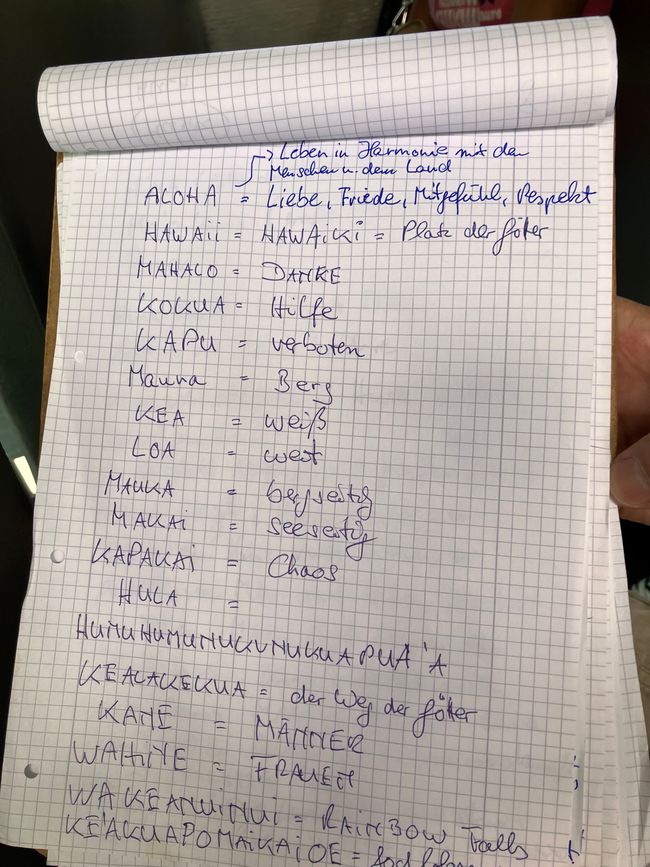 → Leben in Harmonie mit den
Menschen u. dem Land
ALOHA = Liebe, Friede, Mitgefühl, Respekt
HAWAii = HAWAiKi = Platz der Götter
MAHALO = DANKE
KOKUA = Hilfe
KAPU = verboten
Mauna = Berg
KEA = weiß
LOA = weit
MAUKA = bergseitig
MAKAi = seeseitig
KAPAKAi = Chaos
HULA =
HUMUHUMUNUKUNUKUAPUA'A
KEALAKEKUA = der Weg der Götter
KANE = MÄNNER
WAHINE = FRAUEN
WAKEANUiNUi = RAiNBOW Falls
KE'AKUAPOMAiKAiOE = God